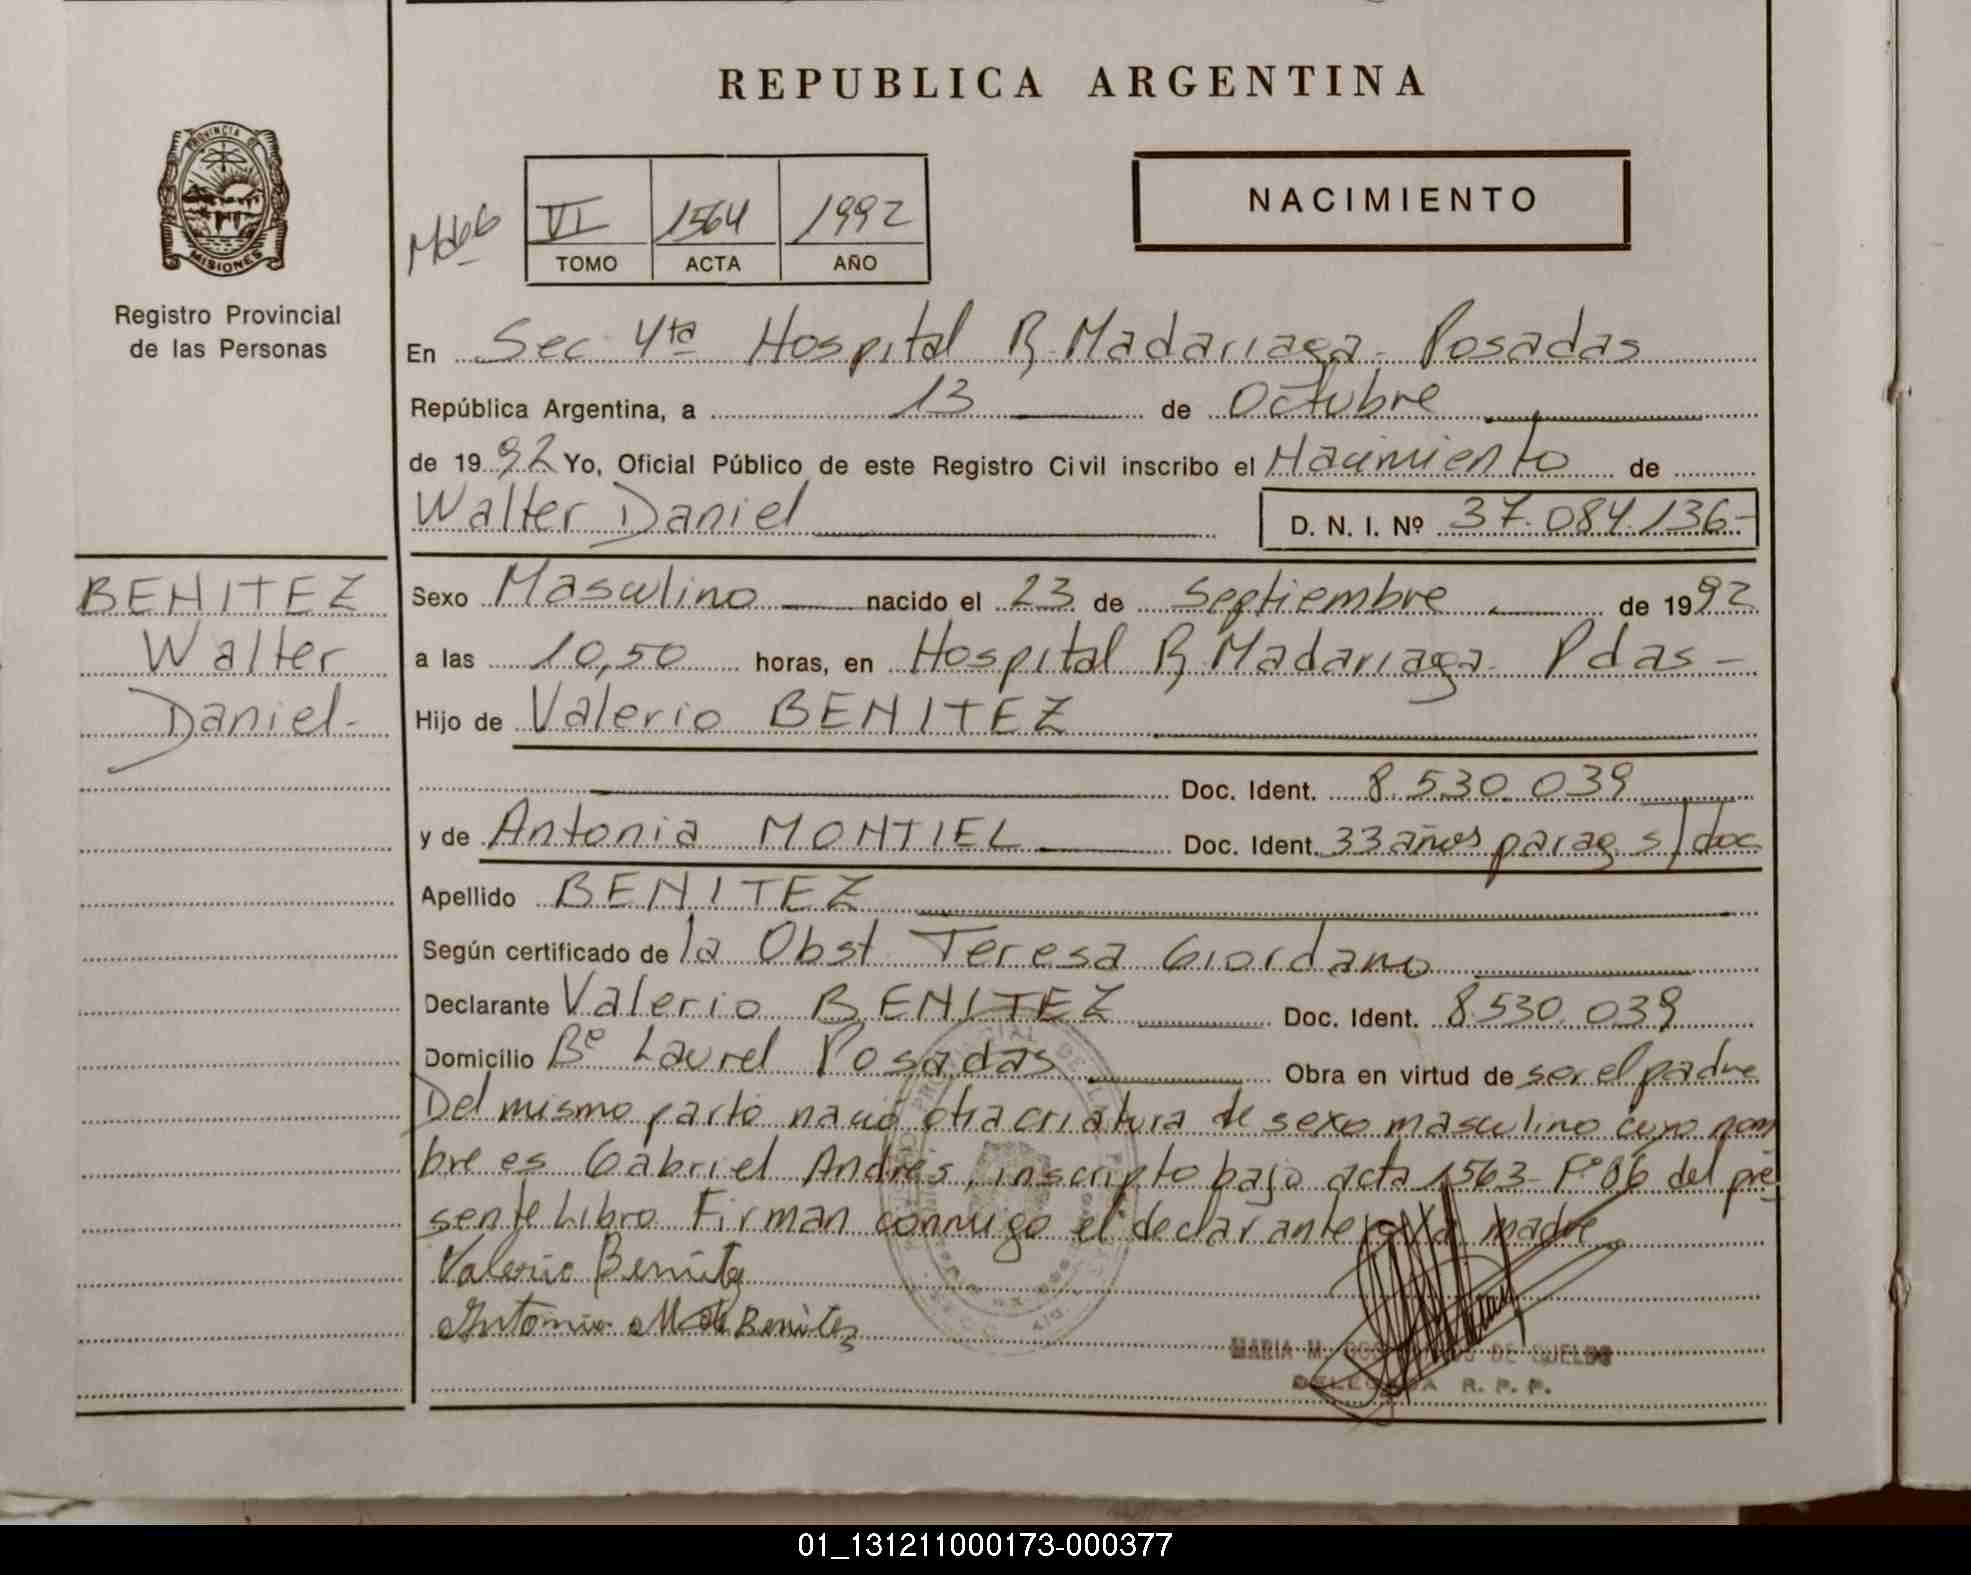 REPUBLICA ARGENTINA
PROVINCIA DE
MISIONES
Registro Provincial
de las Personas
VI 1564 1992
TOMO ACTA AÑO
NACIMIENTO
En Sec 4ta Hospital R. Madariaga - Posadas
República Argentina, a 13 de Octubre
de 1992 Yo, Oficial Público de este Registro Civil inscribo el Nacimiento de
Walter Daniel D. N. I. Nº 37.084.136-
BENITEZ
Walter
Daniel-
Sexo Masculino nacido el 23 de Septiembre de 1992
a las 10,50 horas, en Hospital R. Madariaga - Pdas -
Hijo de Valerio BENITEZ
Doc. Ident. 8.530.039
y de Antonia MONTIEL Doc. Ident. 33 años parag s/doc
Apellido BENITEZ
Según certificado de la Obst Teresa Giordano
Declarante Valerio BENITEZ Doc. Ident. 8.530.039
Domicilio Bº Laurel Posadas Obra en virtud de ser el padre
Del mismo parto nació otra criatura de sexo masculino cuyo nom
bre es Gabriel Andrés, inscripto bajo acta 1563 - Fº 06 del pre
sente Libro Firman conmigo el declarante y la madre
Valerio Benitez
Antonia M de Benitez
MARIA M. DE SUELDO
DELEGADA R. P. P.
01_131211000173-000377